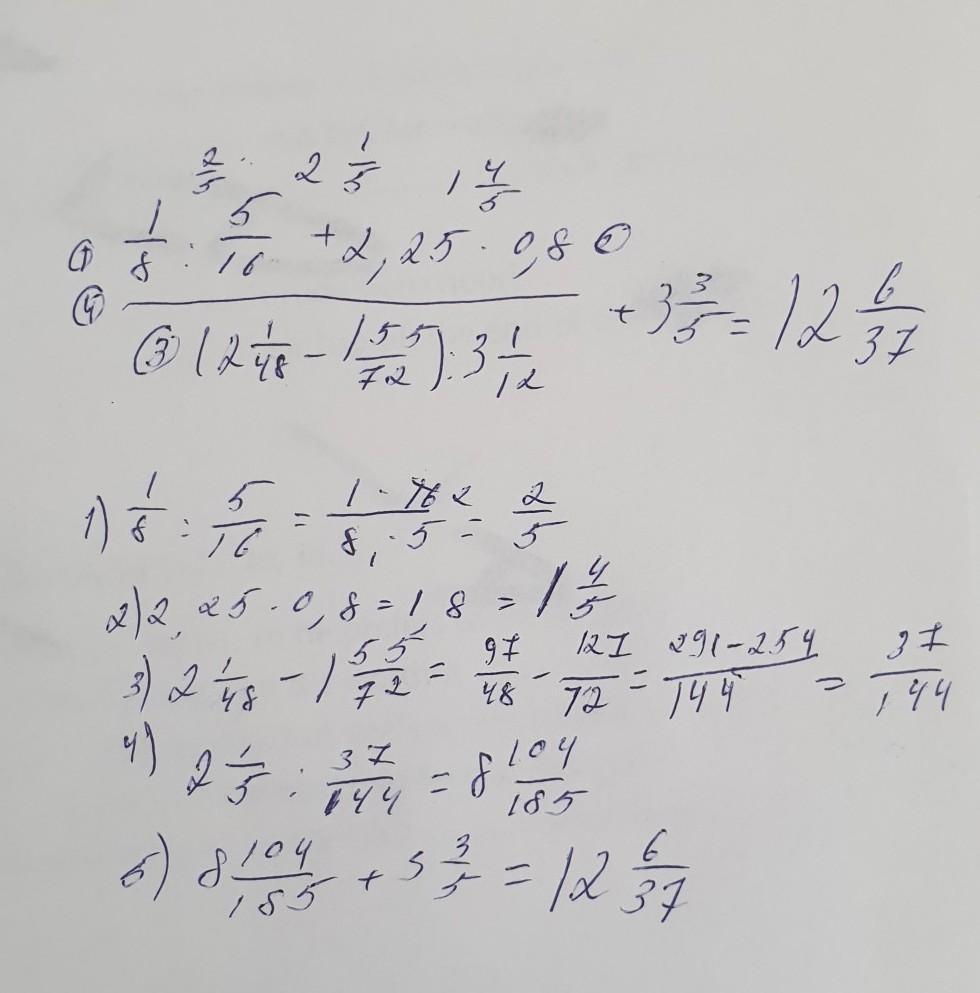 2/5 2 1/5 1 4/5
① 1/8 : 5/16 + 2,25 · 0,8 ②
④ ③ (2 1/48 - 1 55/72) : 3 1/12 + 3 3/5 = 12 6/37
1) 1/8 : 5/16 = 1 · 16 2/8 1 · 5 = 2/5
2) 2,25 · 0,8 = 1,8 = 1 4/5
3) 2 1/48 - 1 55/72 = 97/48 - 127/72 = 291-254/144 = 37/144
4) 2 1/5 : 37/144 = 8 104/185
5) 8 104/185 + 3 3/5 = 12 6/37